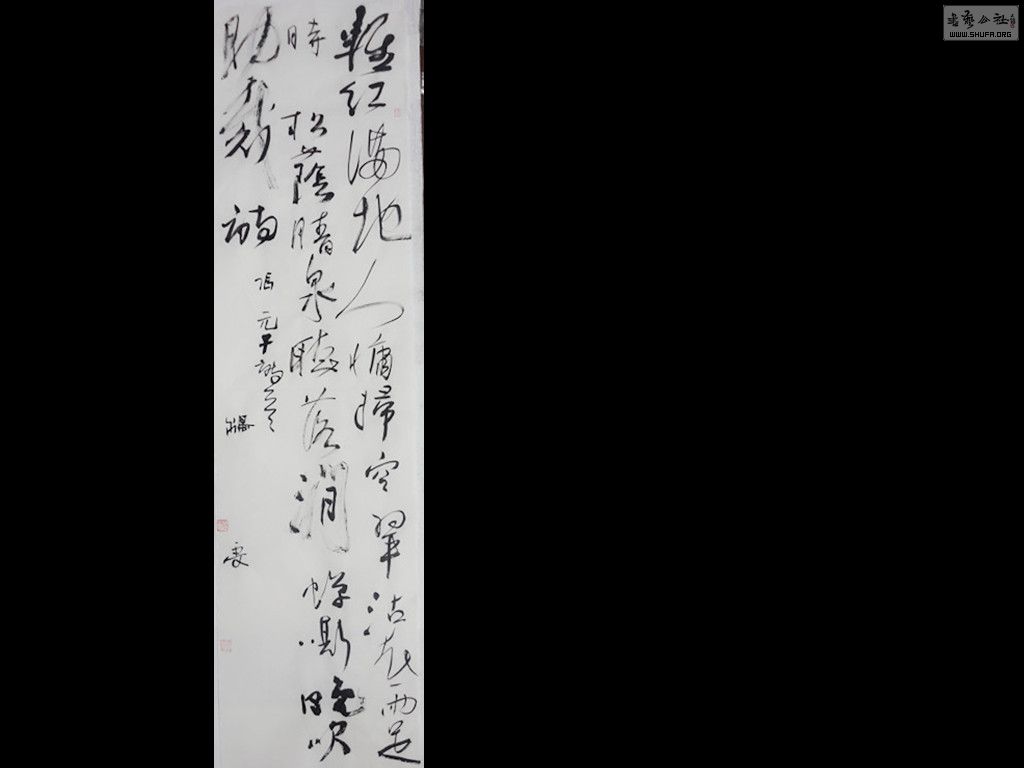 輕紅滿地人慵掃空翠沾衣雨足
時 松蔭晴泉聽落澗蟬嘶晚吹
助裁詩
馮元平詩一首
書藝公社
WWW.SHUFA.ORG